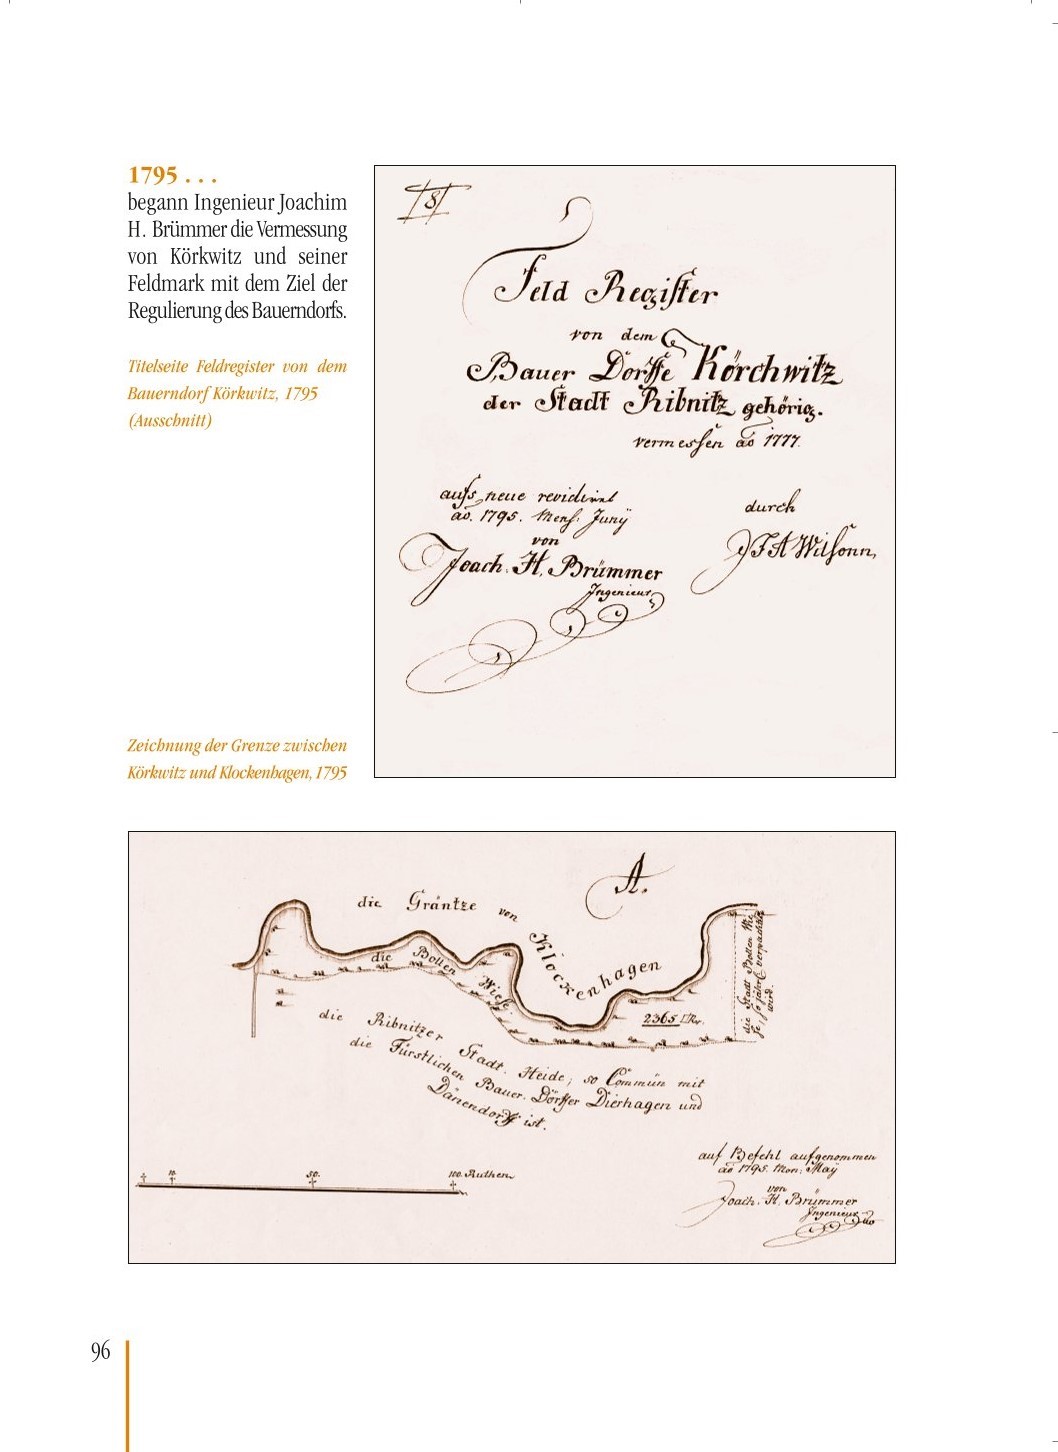 1795 . . .
begann Ingenieur Joachim
H. Brümmer die Vermessung
von Körkwitz und seiner
Feldmark mit dem Ziel der
Regulierung des Bauerndorfs.
Titelseite Feldregister von dem
Bauerndorf Körkwitz, 1795
(Ausschnitt)
8
Feld Register
von dem
Bauer Dorffe Körchwitz
der Stadt Ribnitz gehörig.
vermessen ao 1777.
aufs neue revidiret
ao. 1795. Mens: Juny
von
Joach: H. Brümmer
Ingenieur
durch
JFA Wilsonn,
Zeichnung der Grenze zwischen
Körkwitz und Klockenhagen, 1795
A.
die Gräntze von Klockenhagen
die Bollen Wiese
2365
die Stadt Bollen Wie
se, so jährl: verpachtet
wird.
die Ribnitzer Stadt. Heide, so Commün mit
die Fürstlichen Bauer. Dörffer Dierhagen und
Dänendorff ist.
10. 50. 100. Ruthen
auf Befehl aufgenommen
ao 1795. Mon: May
von
Joach. H. Brümmer
Ingenieur
96